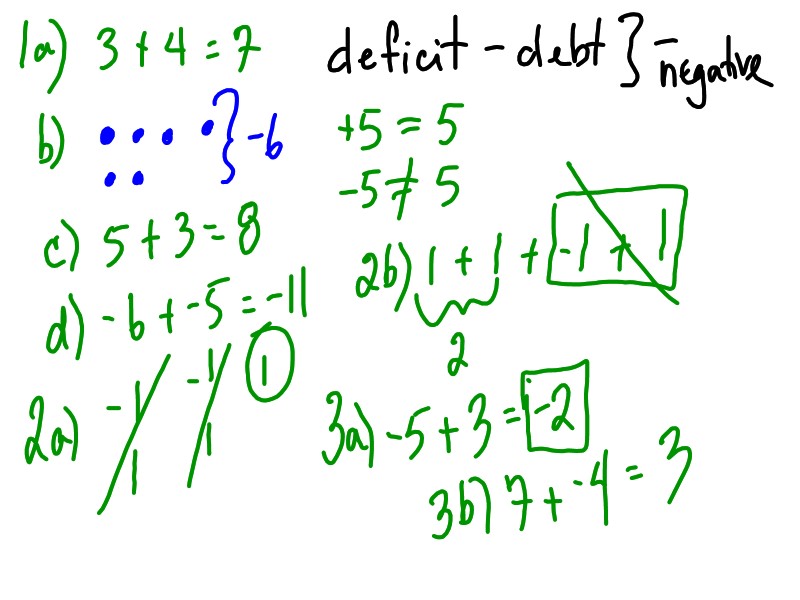 1a) 3 + 4 = 7
deficit - debt } - negative
b) } -6
+5 = 5
-5 ≠ 5
c) 5 + 3 = 8
2b) 1 + 1 + -1 + 1
2
d) -6 + -5 = -11
2a) -1 -1 1
1 1
3a) -5 + 3 = -2
3b) 7 + -4 = 3